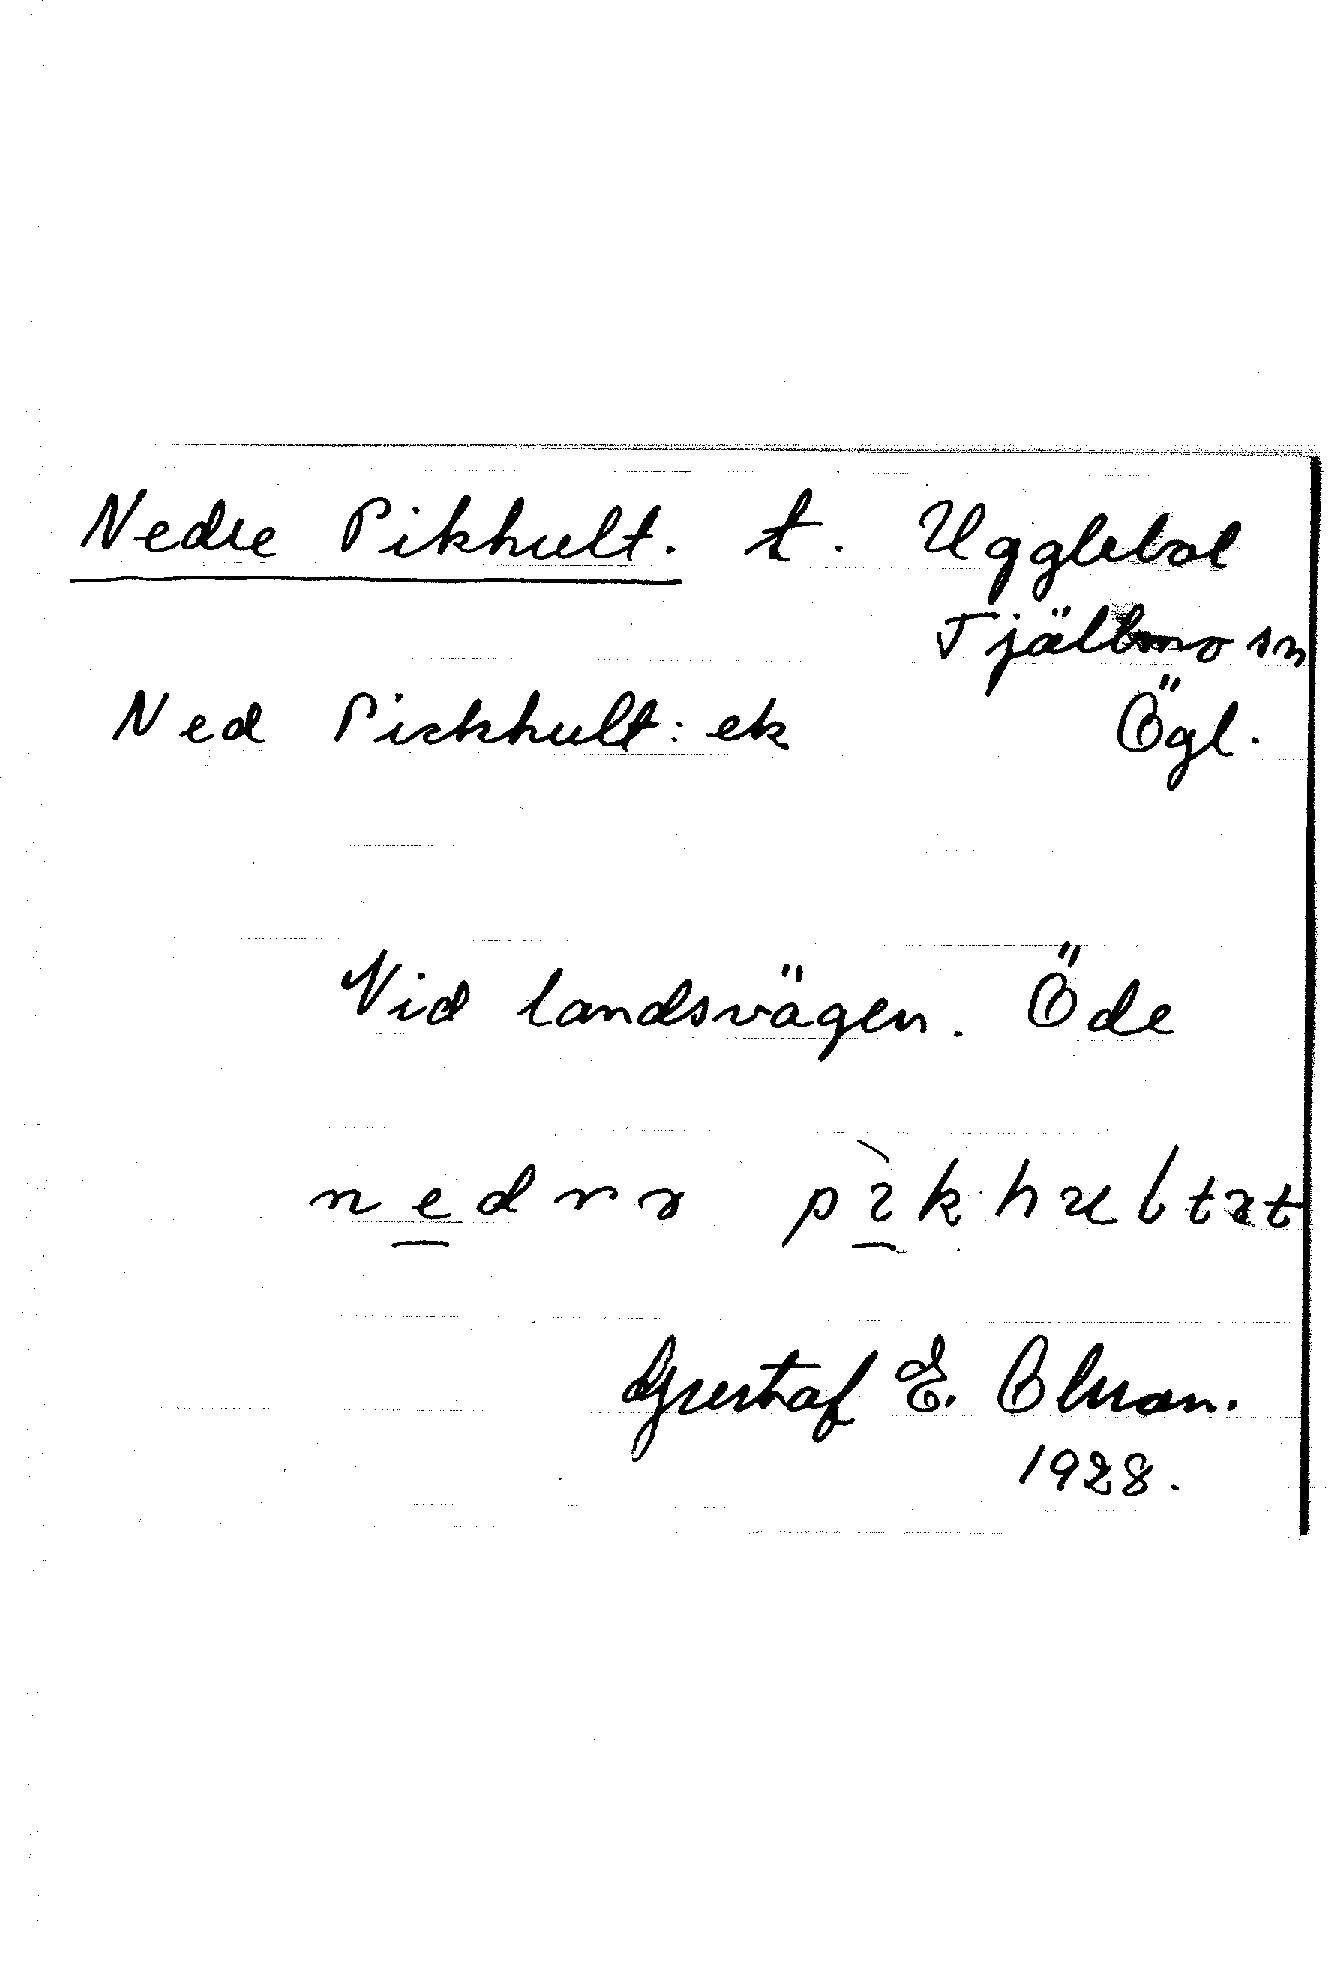 Nedre Pikhult. t. Ugglebol
Tjällmo sn
Ned Pickhult: ek Ögl.
Vid landsvägen. Öde
Gustaf E. Olsson.
1928.